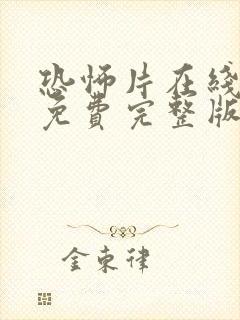 恐怖片在线
免费完整版
金束律